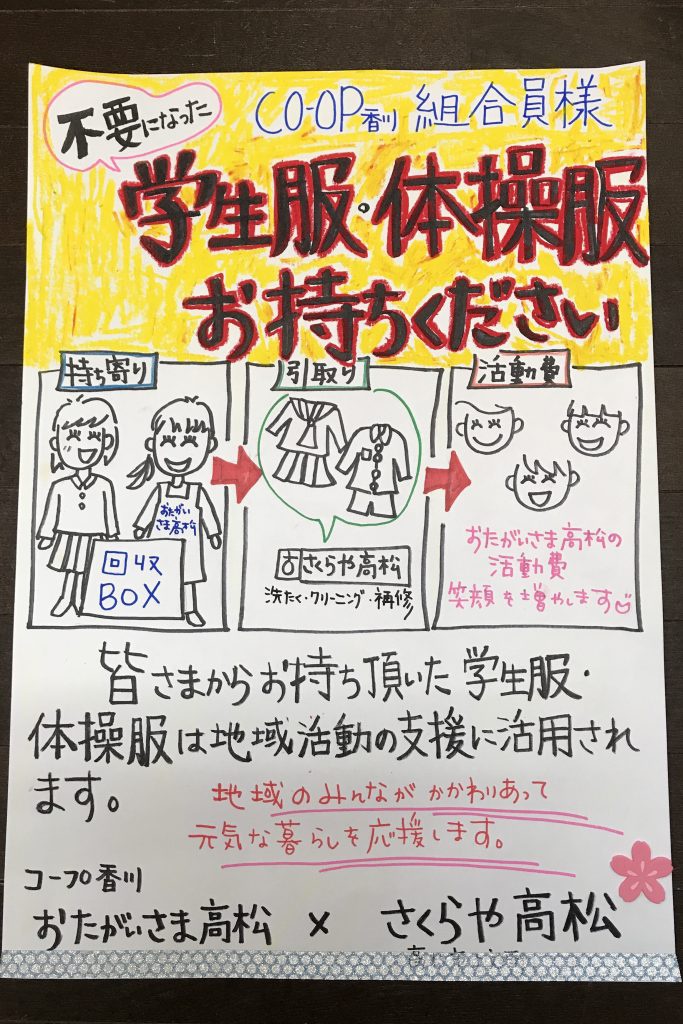 不要になった
CO-OP香川 組合員様
学生服・体操服
お持ちください
持ち寄り
おたがい
さま高松
回収
BOX
引取り
さくらや高松
洗たく・クリーニング・補修
活動費
おたがいさま高松の
活動費
笑顔を増やします
皆さまからお持ち頂いた学生服・
体操服は地域活動の支援に活用され
ます。
地域のみんながかかわりあって
元気な暮らしを応援します。
コープ香川
おたがいさま高松 × さくらや高松